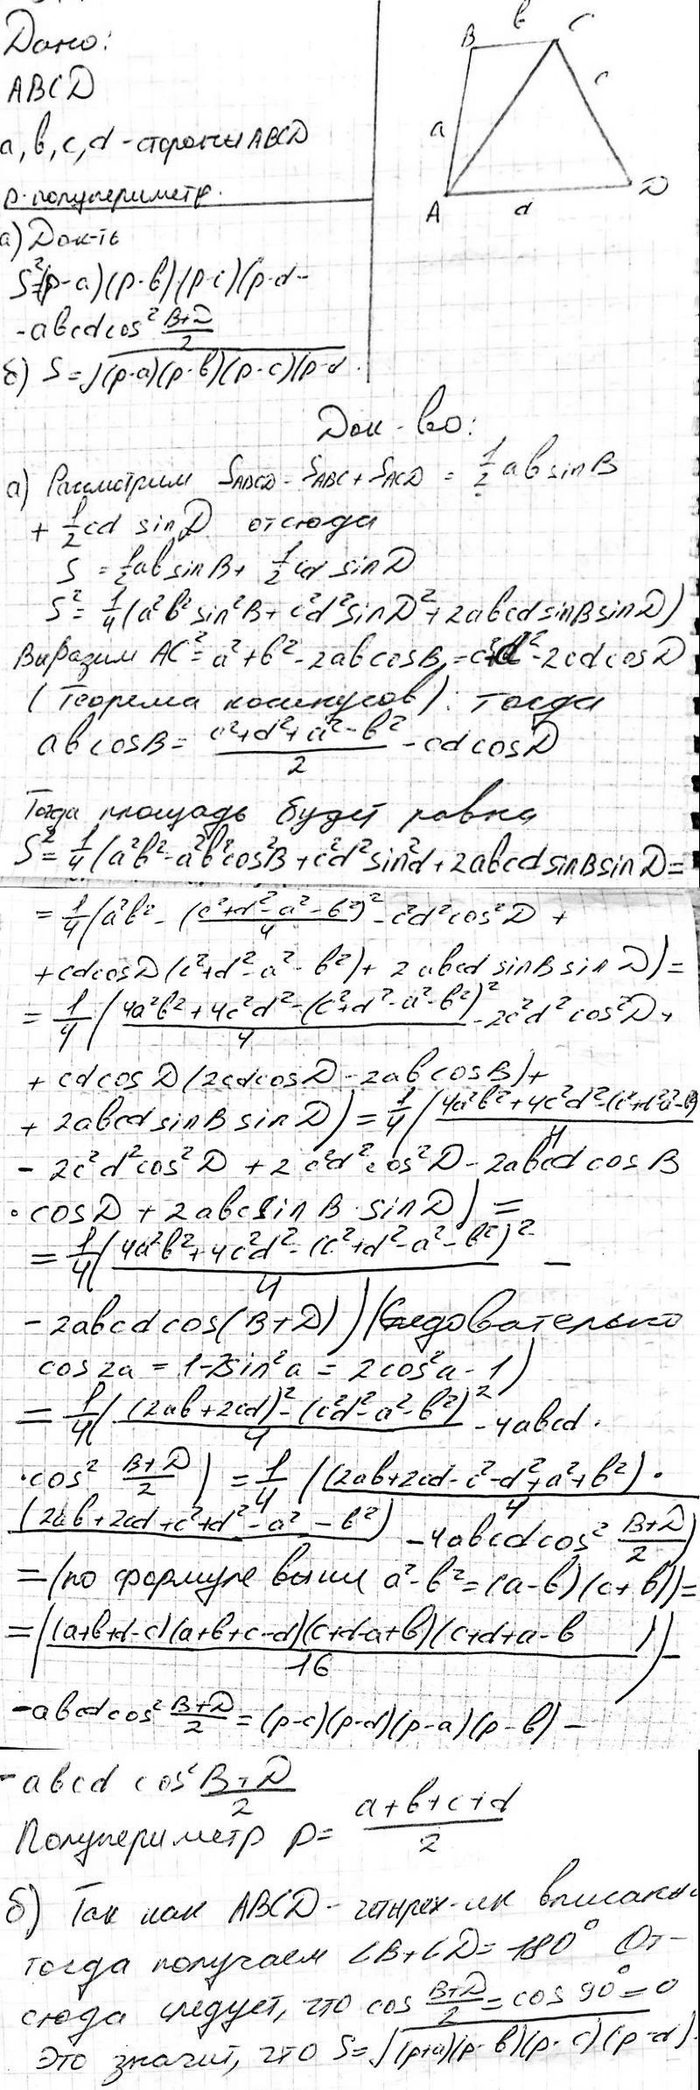 Дано:
ABCD
a, b, c, d - стороны ABCD
p - полупериметр.
B b C
a c
A d D
а) Док-ть
S²=(p-a)(p-b)(p-c)(p-d-
-abcd cos² (B+D)/2
б) S = √(p-a)(p-b)(p-c)(p-d
Док-во:
а) Рассмотрим S_ABCD - S_ABC + S_ACD = 1/2 ab sin B
+ 1/2 cd sin D отсюда
S = 1/2 ab sin B + 1/2 cd sin D
S² = 1/4 (a²b² sin² B + c²d² sin D² + 2abcd sin B sin D)
Выразим AC² = a² + b² - 2ab cos B, = c²+d² - 2cd cos D
(Теорема косинусов). Тогда
ab cos B = (c²+d²+a²-b²)/2 - cd cos D
Тогда площадь будет равна
S² = 1/4 (a²b² - a²b² cos² B + c²d² sin² d + 2abcd sin B sin D =
= 1/4 (a²b² - (c²+d²-a²-b²)²/4 - c²d² cos² D +
+ cd cos D (c²+d²-a²-b²) + 2abcd sin B sin D) =
= 1/4 ((4a²b² + 4c²d² - (c²+d²-a²-b²)²)/4 - 2c²d² cos² D +
+ cd cos D (2cd cos D - 2ab cos B) +
+ 2abcd sin B sin D) = 1/4 ((4a²b² + 4c²d² - (c²+d²-a²-b²)/4
- 2c²d² cos² D + 2c²d² cos² D - 2abcd cos B
· cos D + 2abcd sin B · sin D) =
= 1/4 ((4a²b² + 4c²d² - (c²+d²-a²-b²)²)/4 -
- 2abcd cos (B+D)) (Следовательно
cos 2a = 1-2sin² a = 2cos² a - 1)
= 1/4 (((2ab+2cd)² - (c²d²-a²-b²)²)/4 - 4abcd ·
· cos² (B+D)/2) = 1/4 ((2ab+2cd-c²-d²+a²+b²) ·
(2ab+2cd+c²+d²-a²-b²)/4 - 4abcd cos² (B+D)/2)
= (по формуле выше a²-b² = (a-b)(c+b)) =
= ((a+b+d-c)(a+b+c-d)(c+d-a+b)(c+d+a-b)/16) -
- abcd cos² (B+D)/2 = (p-c)(p-d)(p-a)(p-b) -
- abcd cos² (B+D)/2
Полупериметр p = (a+b+c+d)/2
б) Так как ABCD - четырех-ик вписан
тогда получаем ∠B+∠D = 180° От-
сюда следует, что cos (B+D)/2 = cos 90° = 0
Это значит, что S = √(p+a)(p-b)(p-c)(p-d)